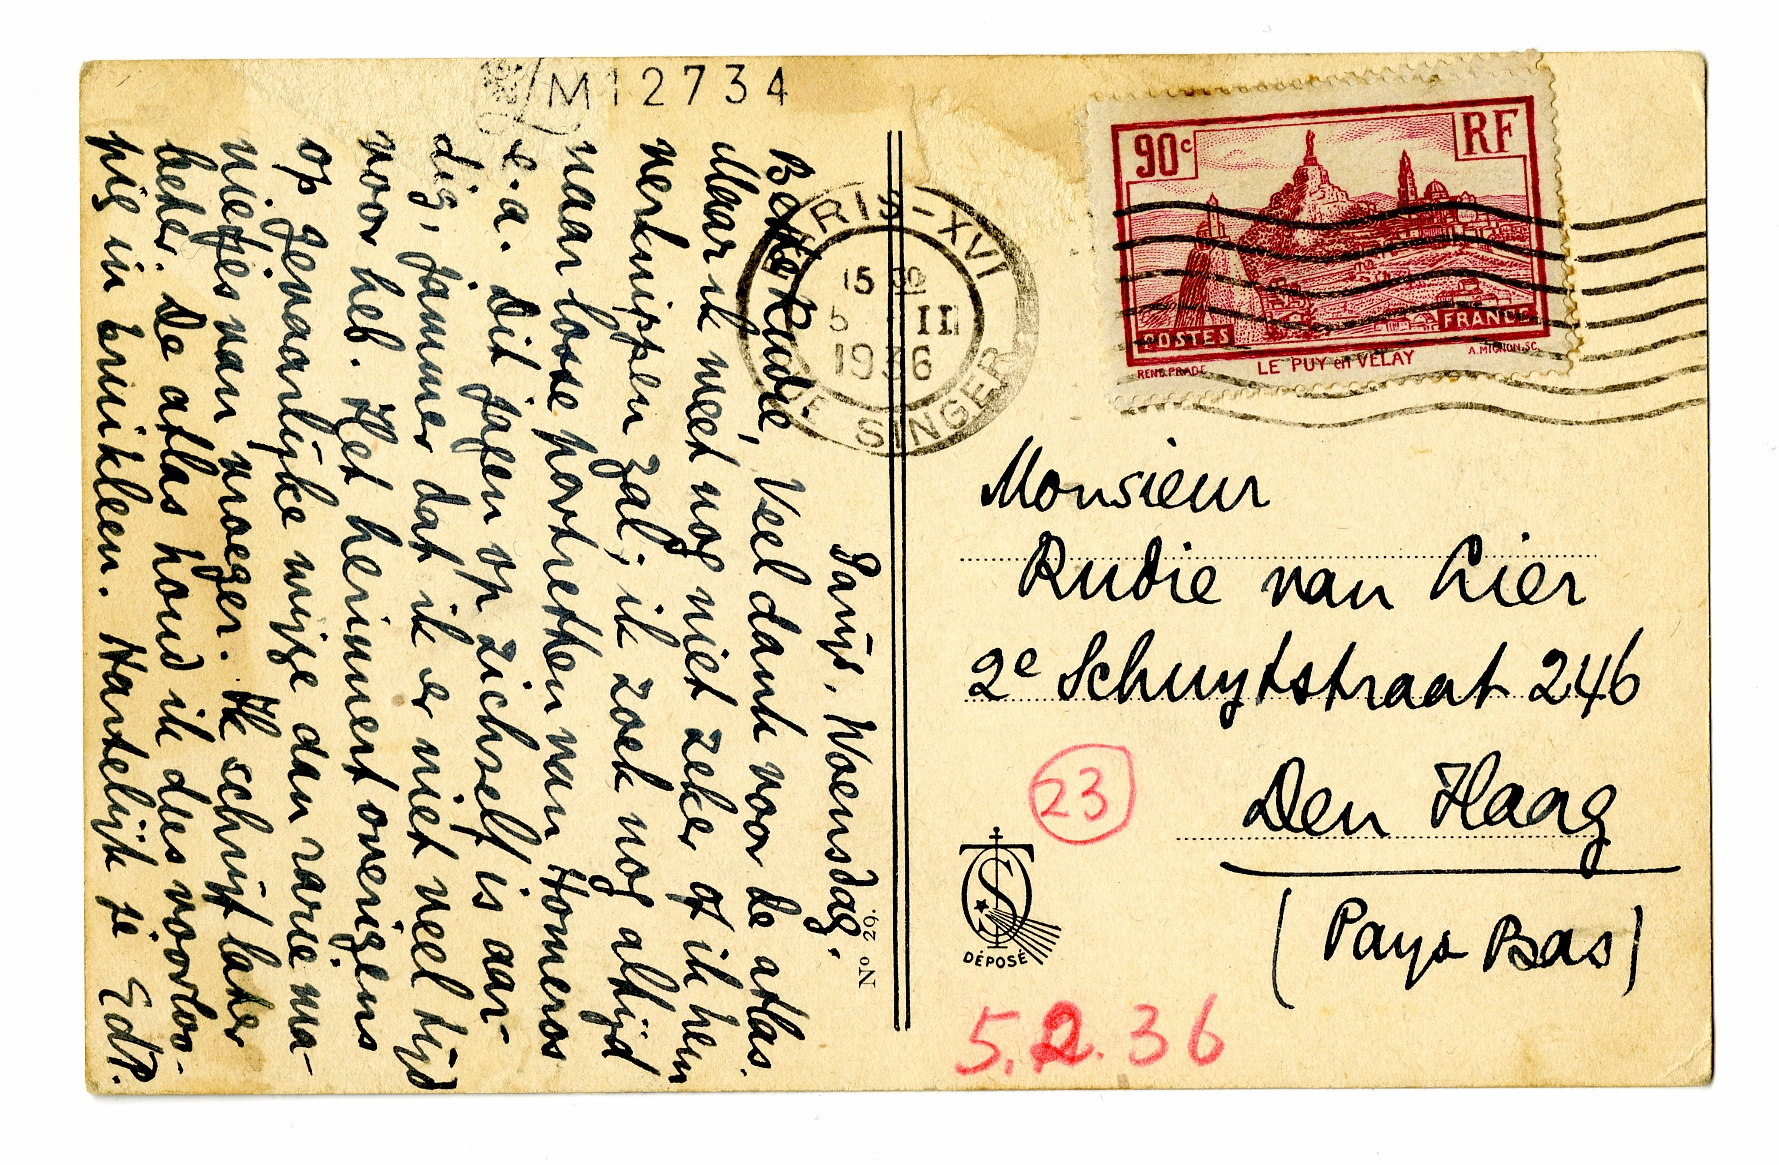 M12734
Parijs, Woensdag.
Beste Rudie, Veel dank voor de atlas.
Maar ik weet nog niet zeker of ik hem
verknippen zal; ik zoek nog altijd
naar losse portretten van Homeros
e.a. Dit jagen op zichzelf is aar-
dig, jammer dat ik er niet veel tijd
voor heb. Het herinnert overigens
op gevaarlijke wijze dan rarie ma-
niefjes van vroeger. Ik schrijf later
beter. De atlas houd ik dus voorloo-
pig in bruikleen. Hartelijk je EdP.
No 26.
90c
RF
POSTES
FRANCE
RENE.PRADE
LE PUY en VELAY
A.MIGNON.SC.
PARIS-XVI
15 30
5 II
1936
RUE SINGER
Monsieur
Rudie van Lier
2e Schuytstraat 246
Den Haag
(Pays Bas)
23
DÉPOSÉ
5.2.36